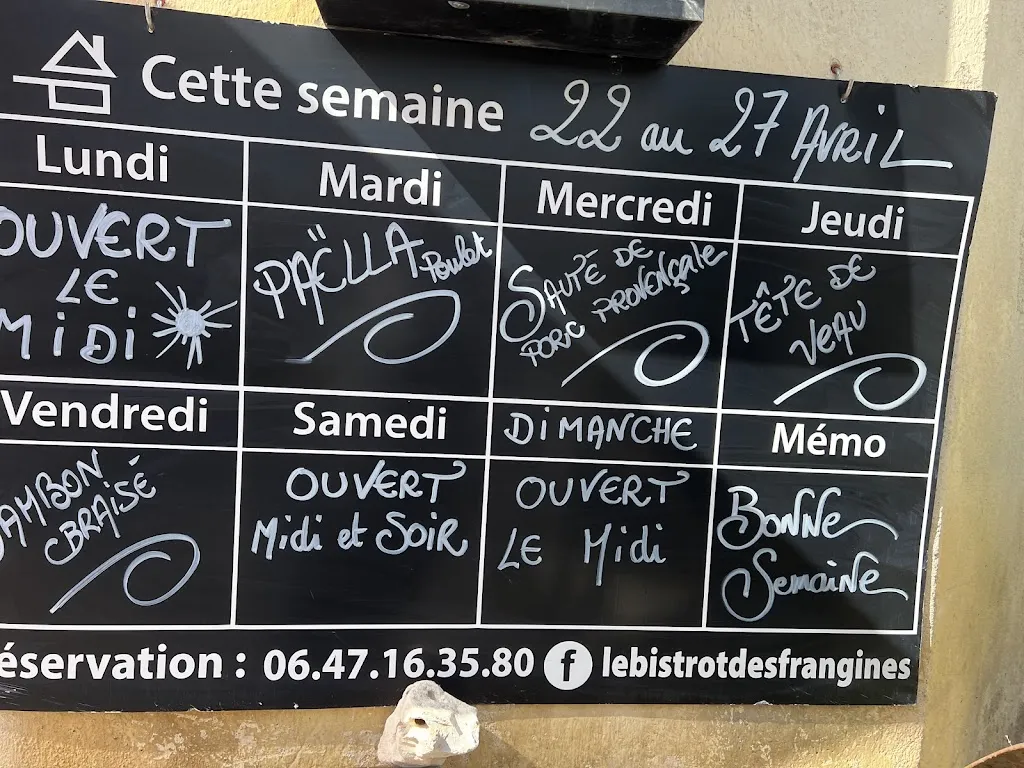 Cette semaine 22 au 27 AVRIL
Lundi
Mardi
Mercredi
Jeudi
OUVERT
LE
MIDI
PAËLLA Poulet
SAUTÉ DE
PORC PROVENÇALE
TÊTE DE
VEAU
Vendredi
Samedi
DIMANCHE
Mémo
AMBON
BRAISÉ
OUVERT
Midi et SOIR
OUVERT
LE Midi
BONNE
Semaine
éservation : 06.47.16.35.80 f lebistrotdesfrangines